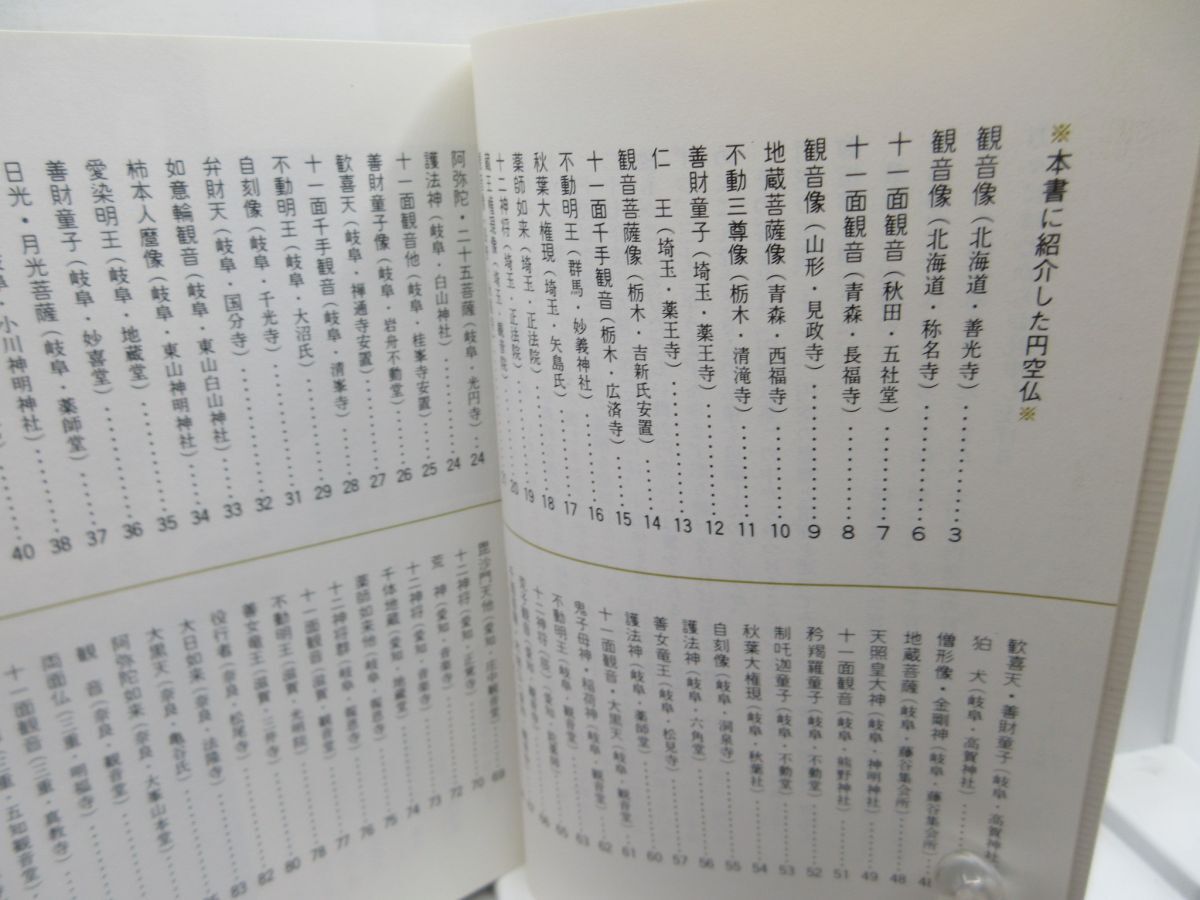 ※本書に紹介した円空仏※
観音像（北海道・善光寺）…………3
観音像（北海道・称名寺）…………6
十一面観音（秋田・五社堂）…………7
十一面観音（青森・長福寺）…………8
観音像（山形・見政寺）…………9
地蔵菩薩像（青森・西福寺）…………10
不動三尊像（栃木・清滝寺）…………11
善財童子（埼玉・薬王寺）…………12
仁　王（埼玉・薬王寺）…………13
観音菩薩像（栃木・吉新氏安置）……14
十一面千手観音（栃木・広済寺）……15
不動明王（群馬・妙義神社）…………16
秋葉大権現（埼玉・矢島氏）…………17
薬師如来（埼玉・正法院）…………18
十二神将（埼玉・正法院）…………19
歓喜天・善財童子（岐阜・高賀神社
狛　犬（岐阜・高賀神社）
僧形像・金剛神（岐阜・藤谷集会所）
地蔵菩薩（岐阜・藤谷集会所）……48
天照皇大神（岐阜・神明神社）……49
十一面観音（岐阜・熊野神社）……51
矜羯羅童子（岐阜・不動堂）……52
制吒迦童子（岐阜・不動堂）……53
秋葉大権現（岐阜・秋葉社）……54
自刻像（岐阜・洞泉寺）……55
護法神（岐阜・六角堂）……56
善女竜王（岐阜・薬師堂）……57
護法神（岐阜・松見寺）……60
十一面観音・大黒天（岐阜・観音堂）……61
鬼子母神・稲荷神（岐阜・観音堂）……62
不動明王（岐阜・観音堂）……63
阿弥陀・二十五菩薩（岐阜・光円寺）……24
護法神（岐阜・白山神社）…………24
十一面観音他（岐阜・桂峯寺安置）……25
善財童子像（岐阜・岩舟不動堂）……26
歓喜天（岐阜・禅通寺安置）…………27
十一面千手観音（岐阜・清峯寺）……28
不動明王（岐阜・大沼氏）…………29
自刻像（岐阜・千光寺）…………31
弁財天（岐阜・国分寺）…………32
如意輪観音（岐阜・東山白山神社）……33
柿本人麿像（岐阜・東山神明神社）……34
愛染明王（岐阜・地蔵堂）…………35
善財童子（岐阜・妙喜堂）…………36
日光・月光菩薩（岐阜・薬師堂）……37
小川神明神社）……38
40
毘沙門天他（愛知・庄中観音堂）……69
十二神将（愛知・正覚寺）……70
荒　神（愛知・音楽寺）……72
十二神将（愛知・音楽寺）……73
千体地蔵（愛知・地蔵堂）……74
薬師如来他（岐阜・報恩寺）……75
十二神将群（岐阜・報恩寺）……76
十一面観音（滋賀・観音堂）……77
不動明王（滋賀・光明院）……78
善女竜王（滋賀・三井寺）……80
役行者（奈良・松尾寺）……82
大日如来（奈良・法隆寺）……83
大黒天（奈良・亀谷氏）
阿弥陀如来（奈良・大峯山本堂）
観　音（奈良・観音堂）
両面仏（三重・明福寺）
十一面観音（三重・真教寺）
（三重・五知観音堂）